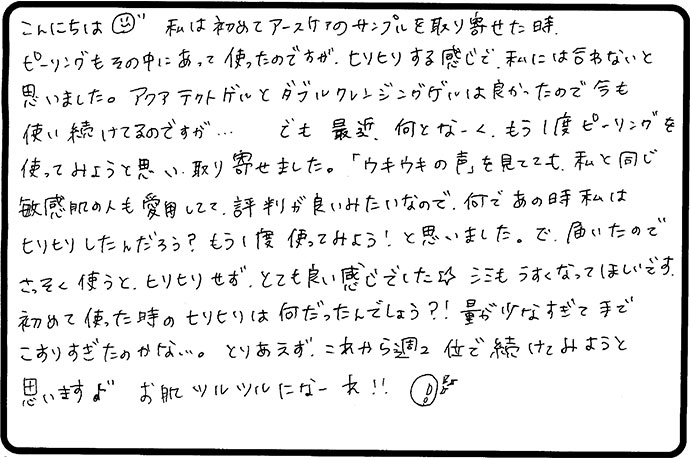 こんにちは 私は初めてアースケアのサンプルを取り寄せた時、
ピーリングもその中にあって使ったのですが、ヒリヒリする感じで、私には合わないと
思いました。アクアテクトゲルとダブルクレンジングゲルは良かったので今も
使い続けてるのですが… でも最近、何となーく、もう1度ピーリングを
使ってみようと思い、取り寄せました。「ウキウキの声」を見てても、私と同じ
敏感肌の人も愛用してて、評判が良いみたいなので、何であの時私は
ヒリヒリしたんだろう?もう1度使ってみよう!と思いました。で、届いたので
さっそく使うと、ヒリヒリせず、とても良い感じでした☆ シミもうすくなってほしいです。
初めて使った時のヒリヒリは何だったんでしょう?!量が少なすぎて手で
こすりすぎたのかな…。とりあえず、これから週2位で続けてみようと
思いますよ お肌ツルツルになーれ!!